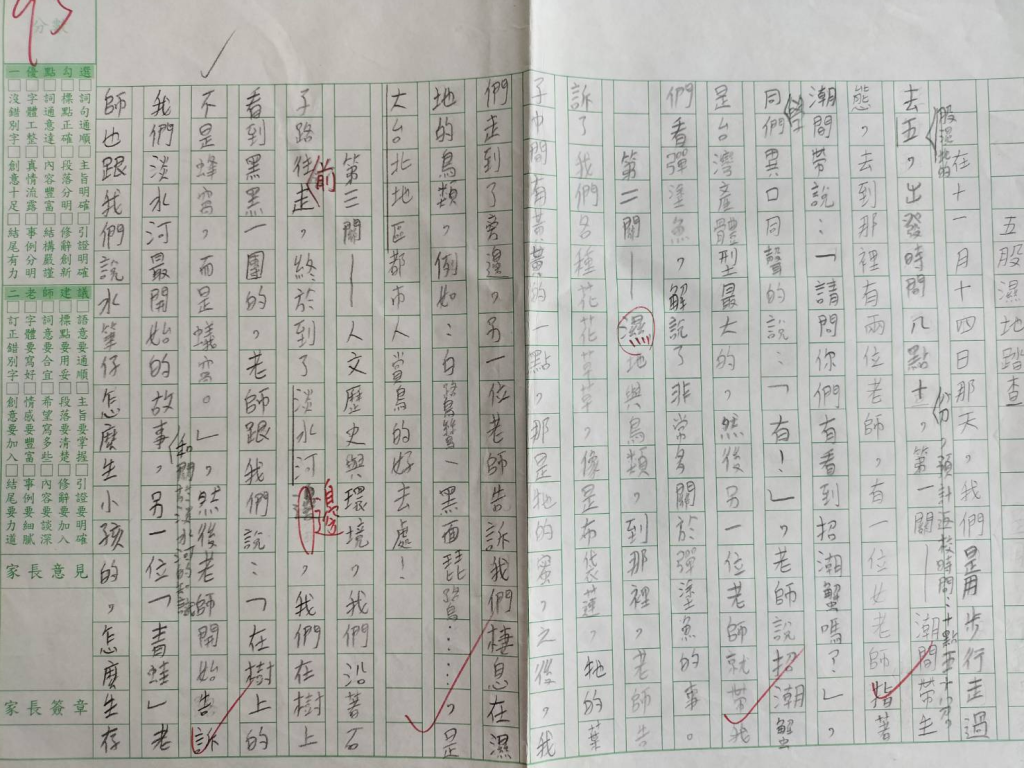 五股濕地踏查
在十一月十四日那天,我們是用步行走過
股濕地的
去五,出發時間八點十,第一關——潮間帶生
份,預計五校時間:十點五十分
態,去到那裡有兩位老師,有一位女老師指著
潮間帶說:「請問你們有看到招潮蟹嗎?」,
同們異口同聲的說:「有!」,老師說招潮蟹
是台灣產體型最大的,然後另一位老師就帶我
們看彈塗魚,解說了非常多關於彈塗魚的事。
第二關——濕地與鳥類到那裡,老師告
訴了我們各種花花草草,像是布袋蓮,牠的葉
子中間有黃黃的一點,那是牠的,之後,我
們走到了旁邊,另一位老師告訴我們棲息在濕
地的鳥類,例如:白鷺鷥、黑面琵鷺……,是
大台北地區都市人賞鳥的好去處!
第三關——人文歷史與環境,我們沿著石
子路往走,終於到了淡水河邊,我們在樹上
前
邊
看到黑黑一團的,老師跟我們說:「在樹上的
不是蜂窩,而是蟻窩。」,然後老師開始告訴
和關於淡水河的
我們淡水河最開始的故事,另一位「青蛙」老
師也跟我們說水筆仔怎麼生小孩的,怎麼生存
分數
95
選勾點優一
詞句通順 主旨明確 引證明確
標點正確 段落分明 修辭創新
詞通意達 內容豐富 結構嚴謹
字體工整 真情流露 事例分明
沒錯別字 創意十足 結尾有力
議建師老二
語意要通順 主旨要掌握 引證要明確
標點要用妥 段落要清楚 修辭要加入
詞意要合宜 希望寫多些 內容要談深
字體要寫好 情感要豐富 事例要細膩
訂正錯別字 創意要加入 結尾要力道
見意長家
章簽長家